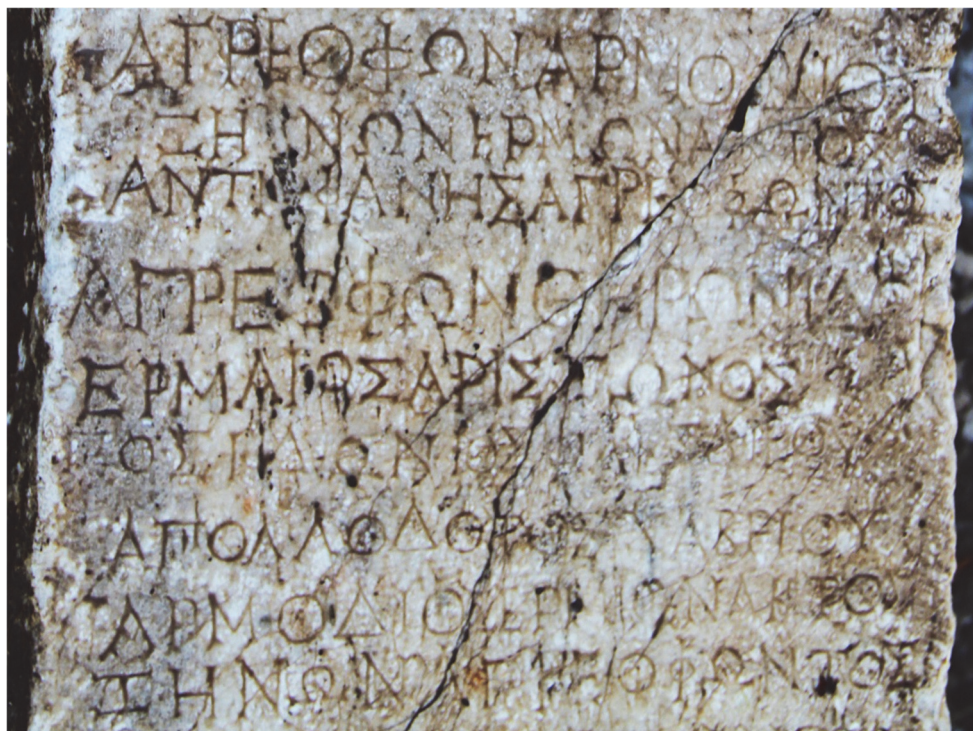 ΑΓΡΕΟΦΩΝ ΑΡΜΟΔΙΟΥ
ΞΗΝΩΝ ΕΡΜΩΝΑΚΤΟΣ
ΑΝΤΙΦΑΝΗΣ ΑΓΡΕΟΦΩΝΤΟΣ
ΑΓΡΕΟΦΩΝ
ΕΡΜΑΙΟΣ ΑΡΙΣΤΩΧΟΣ
ΠΟΣΙΔΩΝΙΟΣ
ΑΠΟΛΛΟΔΟΡΟΣ
ΑΡΜΟΔΙΟΣ ΕΡΜΩΝΑΚΤΟΣ
ΞΗΝΩΝ ΑΓΡΕΟΦΩΝΤΟΣ